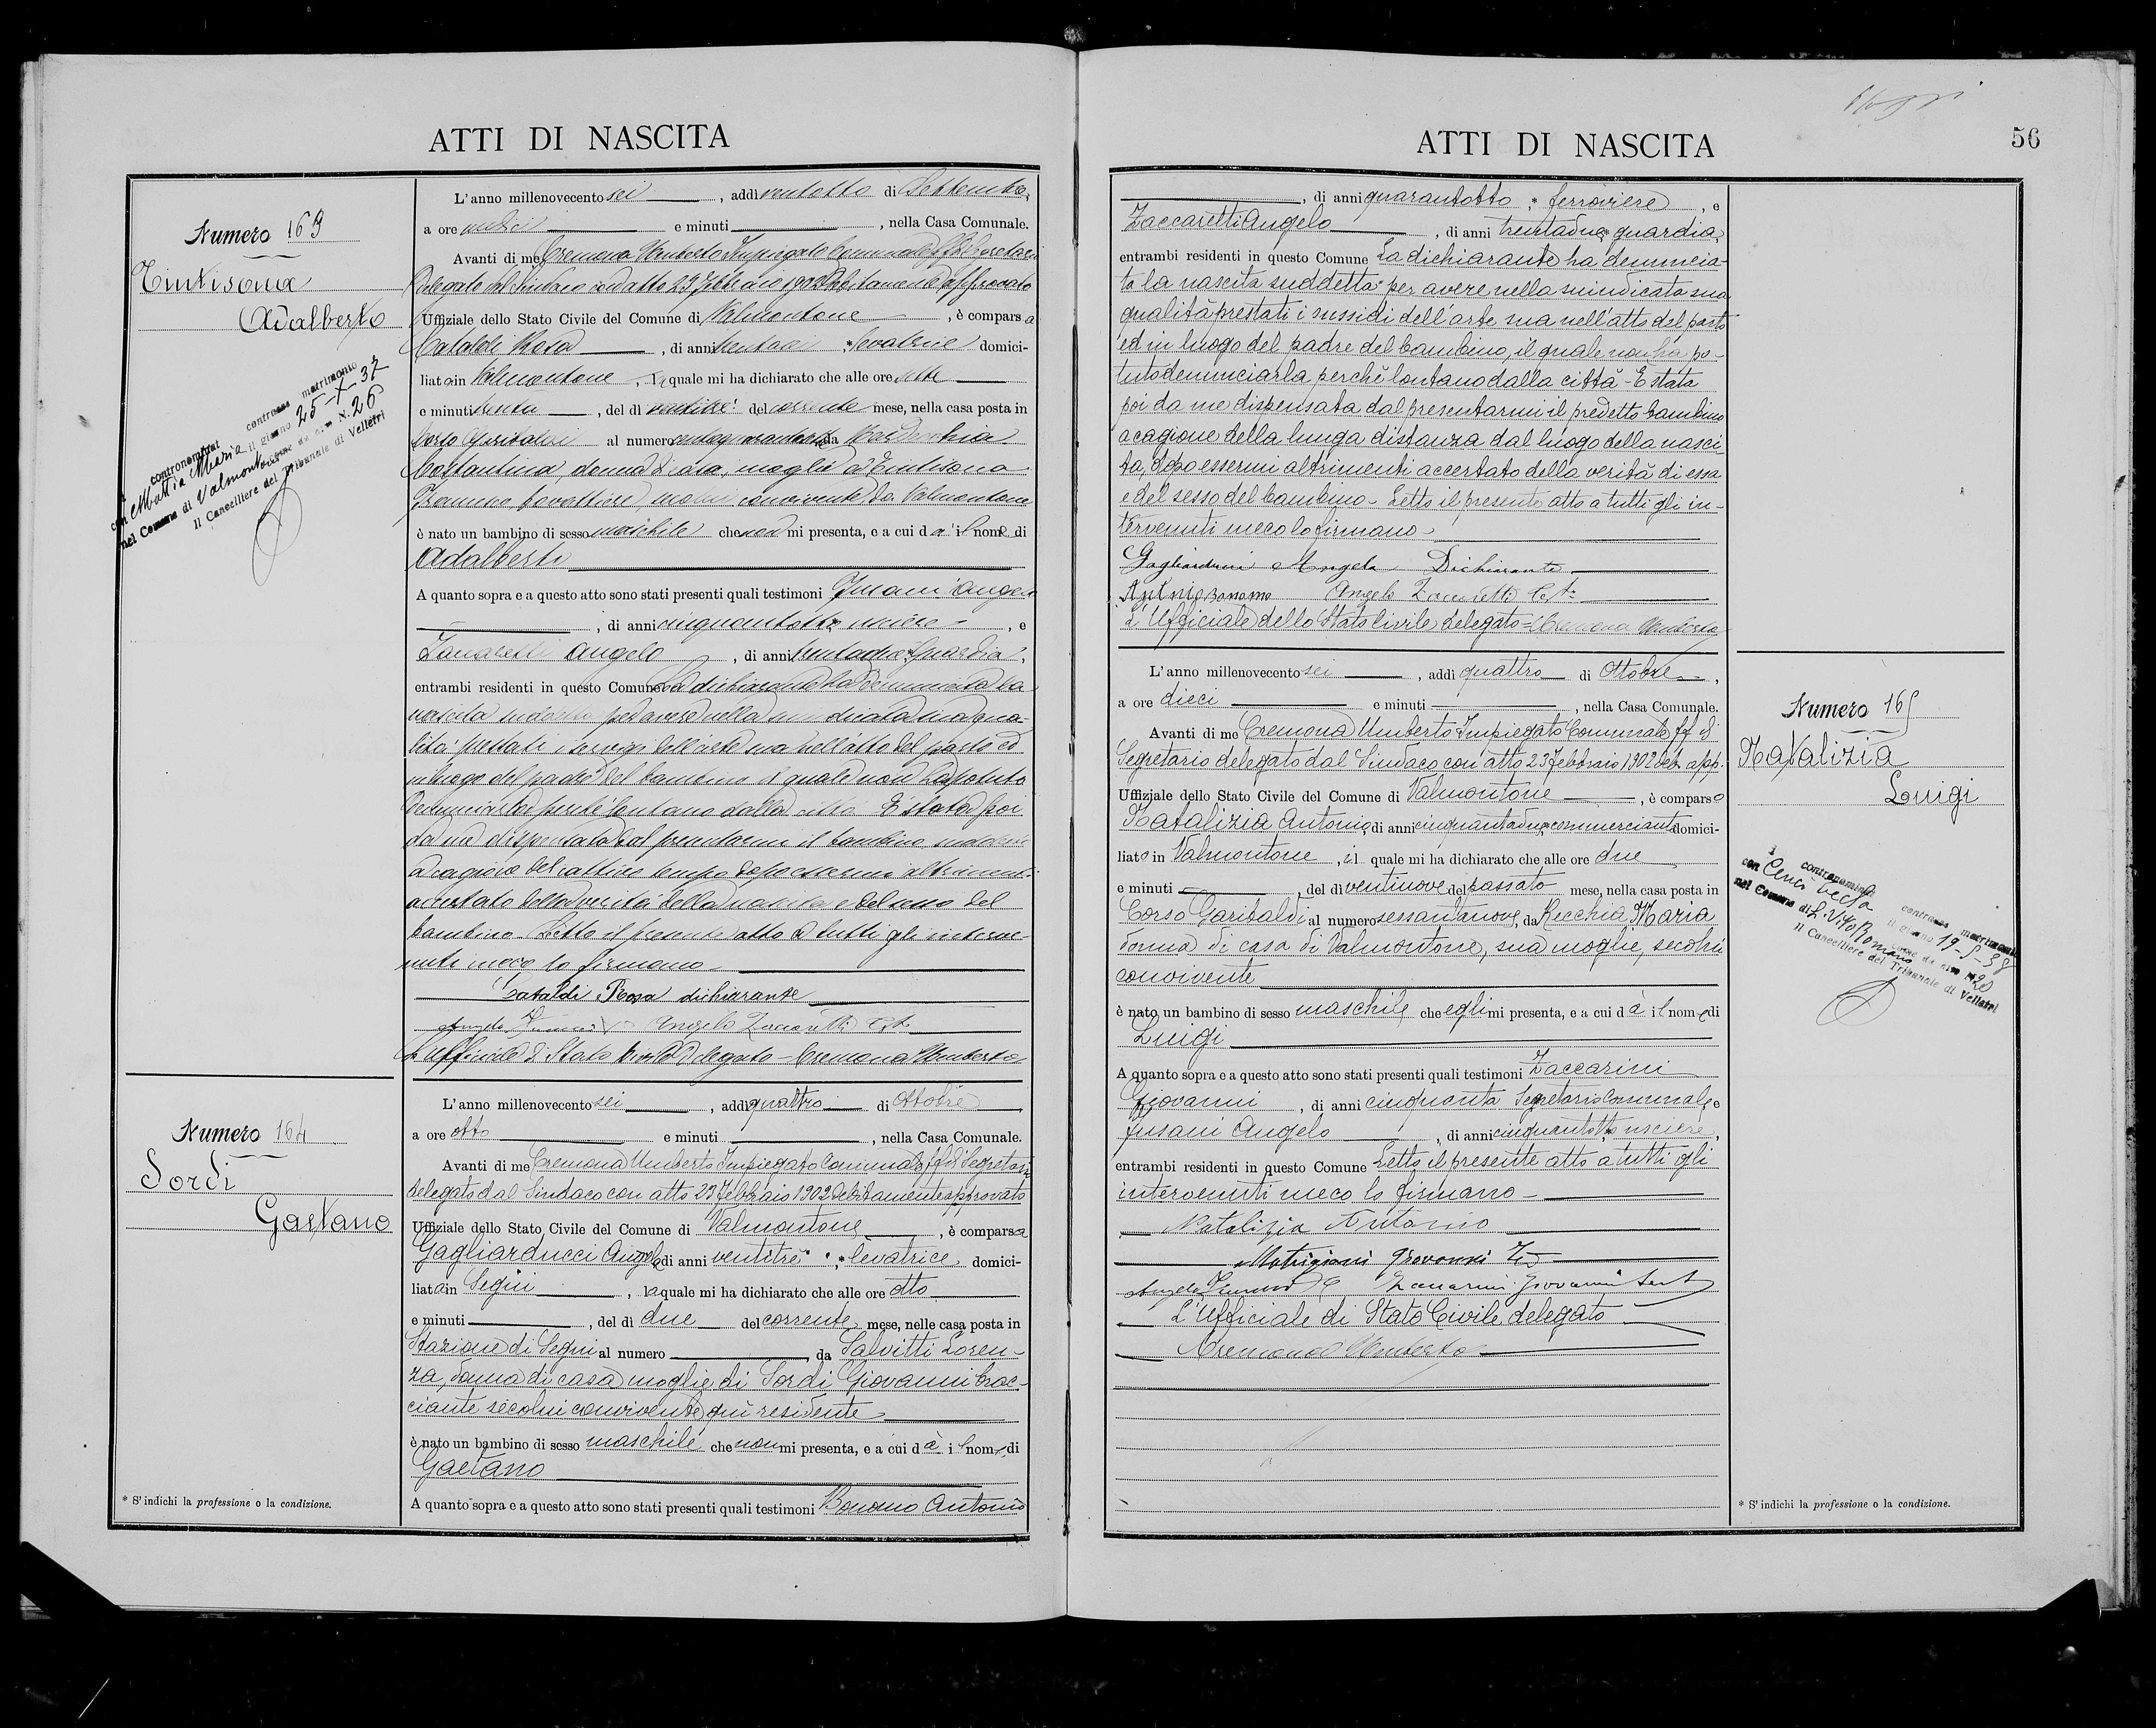 ATTI DI NASCITA
Numero 163
Tintisona
Adalberto
contronominat
contrasse matrimonio
con Mattia Maria il giorno 25-X-37
nel Comune di Valmontone come da atto N. 26
Il Cancelliere del Tribunale di Velletri
L'anno millenovecento sei, addì ventotto di Settembre,
a ore undici e minuti, nella Casa Comunale.
Avanti di me Cremona Umberto Impiegato Comunale ff di Segretario
delegato dal Sindaco con atto 23 Febbraio 1902 debitamente approvato
Uffiziale dello Stato Civile del Comune di Valmontone, è comparsa
Cataldi Rosa, di anni * levatrice domici-
liata in Valmontone, la quale mi ha dichiarato che alle ore
e minuti trenta, del dì ventitre del corrente mese, nella casa posta in
Corso Garibaldi al numero da
Costantina, donna di casa, moglie di Tintisona
convivente, da Valmontone
è nato un bambino di sesso maschile che non mi presenta, e a cui dà il nome di
Adalberto
A quanto sopra e a questo atto sono stati presenti quali testimoni Fusani Angelo
, di anni cinquantotto, usciere, e
Zaccaretti Angelo, di anni trentadue, guardia,
entrambi residenti in questo Comune La dichiarante ha denunciata la
nascita suddetta per avere nella sua qua-
lità prestati i servigi dell'arte sua nell'atto del parto ed
in luogo del padre del bambino il quale non ha potuto
denunciarla perchè lontano dalla città È stata poi
da me dispensata dal presentarmi il bambino suddetto
a cagione del cattivo tempo dopo essermi altrimenti
accertato della verità della nascita e del sesso del
bambino. Letto il presente atto a tutti gli interve-
nuti meco lo firmano
Cataldi Rosa dichiarante
Angelo Fusani Angelo Zaccaretti
L'Ufficiale di Stato Civile delegato - Cremona Umberto
Numero 164
Sordi
Gaetano
L'anno millenovecento sei, addì quattro di Ottobre
a ore otto e minuti, nella Casa Comunale.
Avanti di me Cremona Umberto Impiegato Comunale ff di Segretario
delegato dal Sindaco con atto 23 Febbraio 1902 debitamente approvato
Uffiziale dello Stato Civile del Comune di Valmontone, è comparsa
Gagliarducci Angela di anni ventitrè, * levatrice domici-
liata in Segni, la quale mi ha dichiarato che alle ore otto
e minuti, del dì due del corrente mese, nelle casa posta in
Stazione di Segni al numero da Salvitti Loren-
za, donna di casa moglie di Sordi Giovanni brac-
ciante secolui convivente, qui residente
è nato un bambino di sesso maschile che non mi presenta, e a cui dà il nome di
Gaetano
A quanto sopra e a questo atto sono stati presenti quali testimoni Bonomo Antonio
* S'indichi la professione o la condizione.
ATTI DI NASCITA
56
, di anni quarantotto, * ferroviere, e
Zaccaretti Angelo, di anni trentadue, guardia,
entrambi residenti in questo Comune La dichiarante ha denuncia-
ta la nascita suddetta per avere nella suindicata sua
qualità prestati i sussidi dell'arte sua nell'atto del parto
ed in luogo del padre del bambino, il quale non ha po-
tuto denunciarla perchè lontano dalla città - È stata
poi da me dispensata dal presentarmi il predetto bambino
a cagione della lunga distanza dal luogo della nasci-
ta, dopo essermi altrimenti accertato della verità di essa
e del sesso del bambino - Letto il presente atto a tutti gli in-
tervenuti meco lo firmano -
Gagliarducci Angela Dichiarante
Antnio Bonomo Angelo Zaccaretti
L'Ufficiale dello Stato Civile delegato = Cremona Umberto
L'anno millenovecento sei, addì quattro di Ottobre,
a ore dieci e minuti, nella Casa Comunale.
Avanti di me Cremona Umberto Impiegato Comunale ff di
Segretario delegato dal Sindaco con atto 23 Febbraio 1902 deb. app.
Uffiziale dello Stato Civile del Comune di Valmontone, è comparso
Natalizia Antonio, di anni cinquantadue, commerciante domici-
liato in Valmontone, il quale mi ha dichiarato che alle ore due
e minuti, del dì ventinove del passato mese, nella casa posta in
Corso Garibaldi al numero sessantanove, da Recchia Maria
donna di casa di Valmontone, sua moglie, secolui
convivente
è nato un bambino di sesso maschile che egli mi presenta, e a cui dà il nome di
Luigi
A quanto sopra e a questo atto sono stati presenti quali testimoni Zaccarini
Giovanni, di anni cinquanta Segretario Comunale, e
Fusani Angelo, di anni cinquantotto usciere,
entrambi residenti in questo Comune Letto il presente atto a tutti gli
intervenuti meco lo firmano -
Natalizia Antonio
Giovanni
Angelo Fusani Zaccarini Giovanni
L'Ufficiale di Stato Civile delegato
Cremona Umberto
Numero 165
Natalizia
Luigi
contronominato
contrasse matrimonio
con Cenci il giorno 19-5-38
nel Comune di S. Vito Romano come da atto N. 20
Il Cancelliere del Tribunale di Velletri
* S'indichi la professione o la condizione.